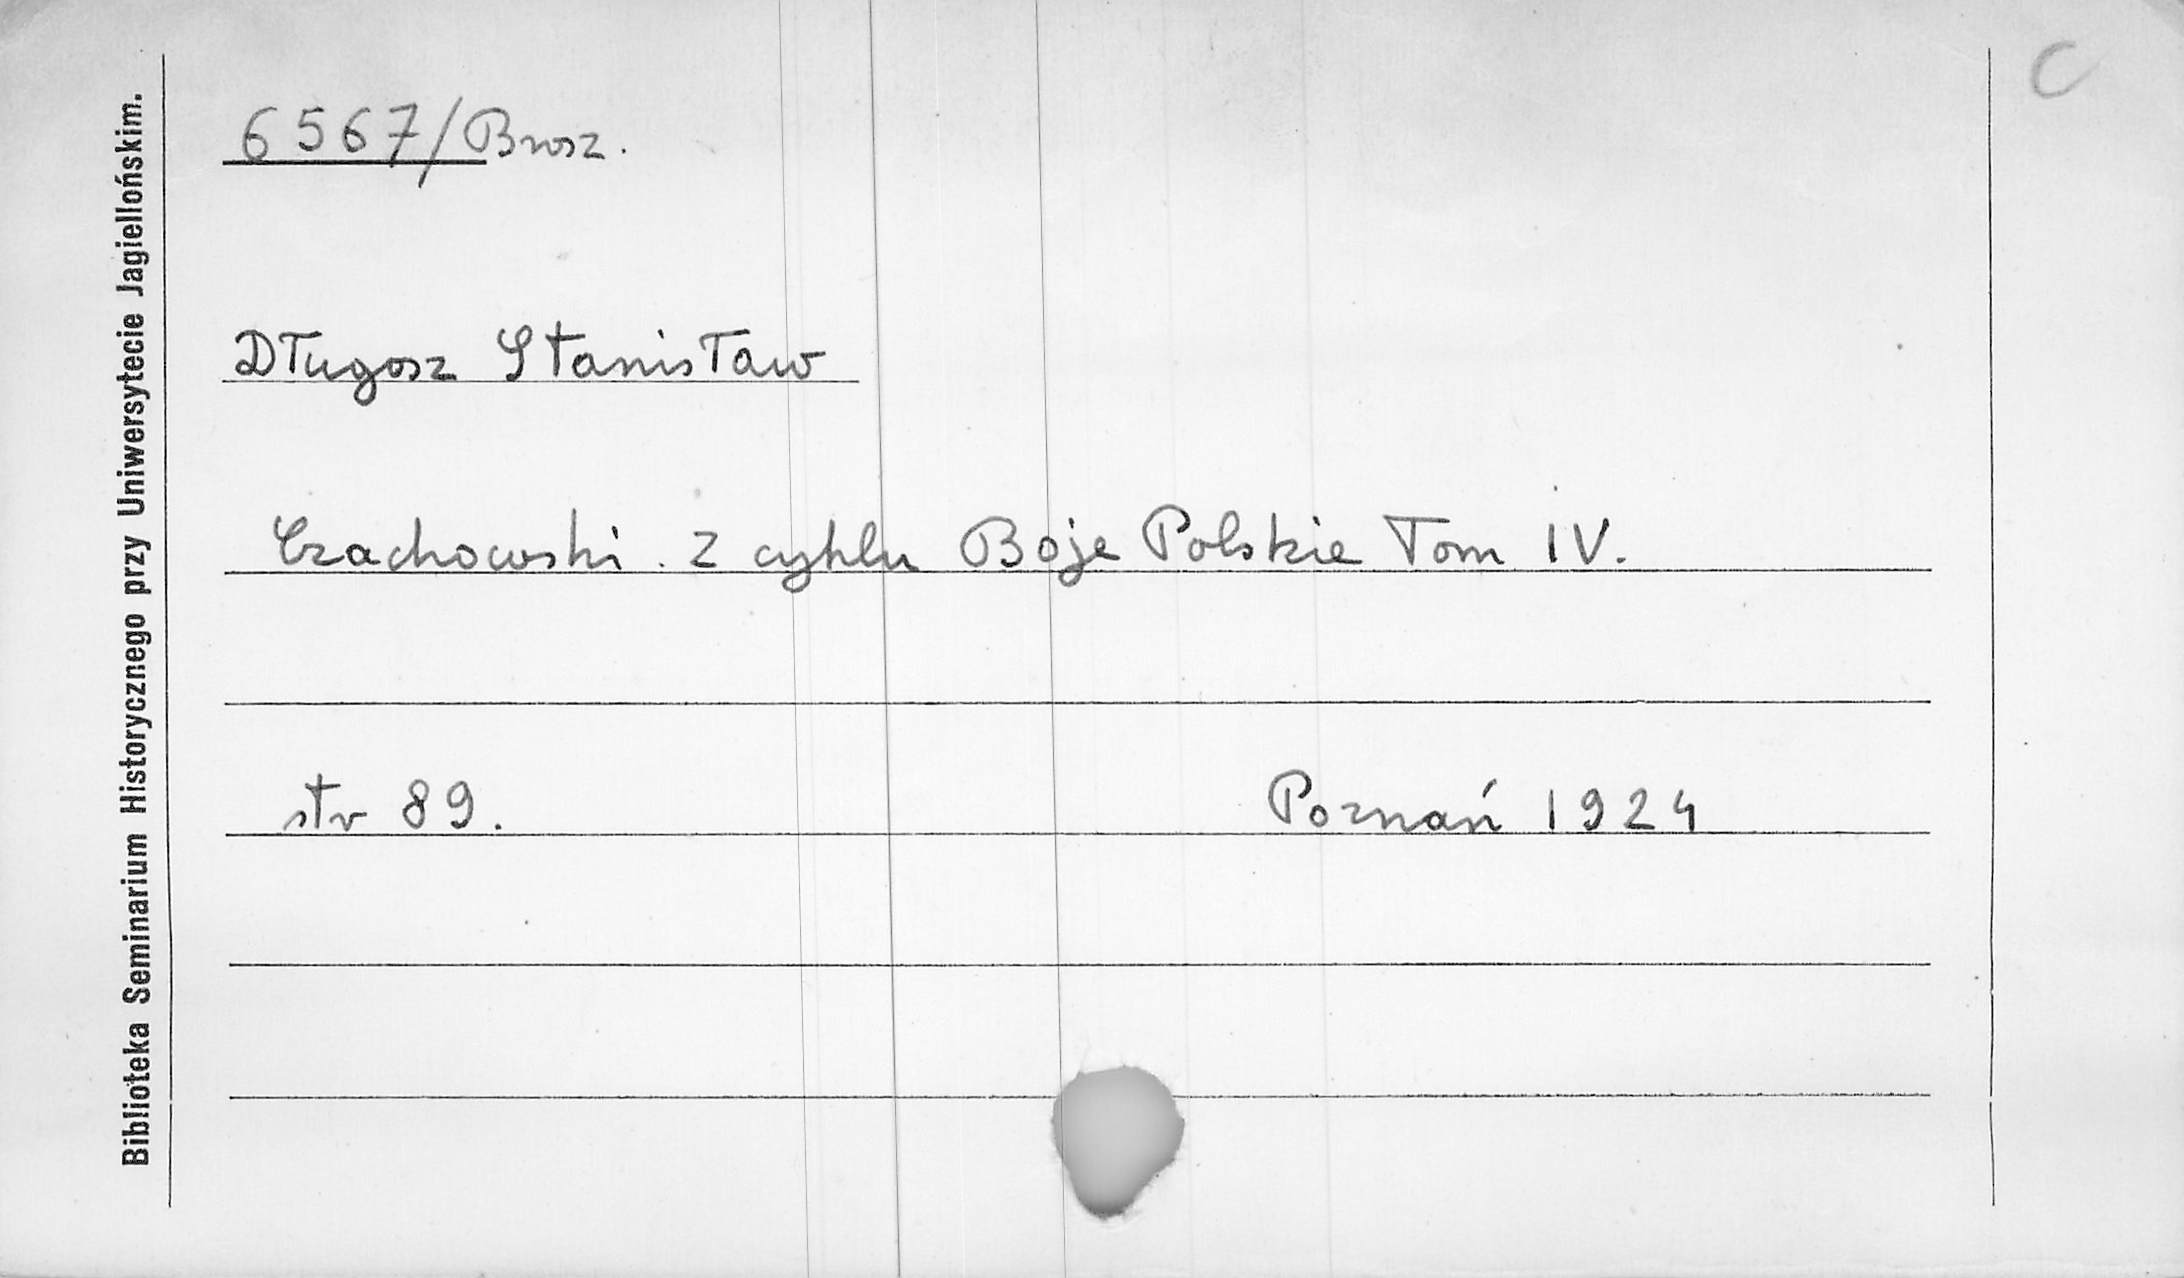 C
6567/Brosz.
Długosz Stanisław
Czachowski. Z cyklu Boje Polskie Tom IV.
str 89. Poznań 1924
Biblioteka Seminarium Historycznego przy Uniwersytecie Jagiellońskim.